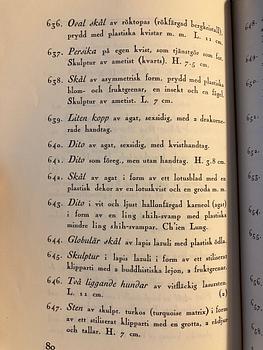 636. Oval skål av röktopas (rökfärgad bergkristall),
prydd med plastiska kvistar m. m. L. 12 cm.
637. Persika på egen kvist, som tjänstgör som fot.
Skulptur av ametist (kvarts). H. 7.5 cm.
638. Skål av asymmetrisk form, prydd med plastiska
blom- och fruktgrenar, en insekt och en fågel.
Skulptur av ametist. L. 7 cm.
639. Liten kopp av agat, sexsidig, med 2 drakorne-
rade handtag.
640. Dito av agat, sexsidig, med kvisthandtag.
641. Dito som föreg., men utan handtag. H. 3.8 cm.
642. Skål av agat i form av ett lotusblad med en
plastisk dekor av en lotuskvist och en groda m. m.
643. Dito i vit och ljust hallonfärgad karneol (agat)
i form av en ling shih-svamp med plastiska
mindre ling shih-svampar. Ch'ien Lung.
644. Globulär skål av lapis lazuli med plastisk ödla.
645. Skulptur i lapis lazuli i form av ett stiliserat
klipparti med en buddhistiska lejon, a fruktgrenar.
646. Två liggande hundar av vitfläckig lasursten.
L. 12 cm. (2)
647. Sten av skulpt. turkos (turquoise matrix) i form
av ett stiliserat klipparti med en grotta, 2 rådjur
och tallar. H. 7 cm.
80
648.
649.